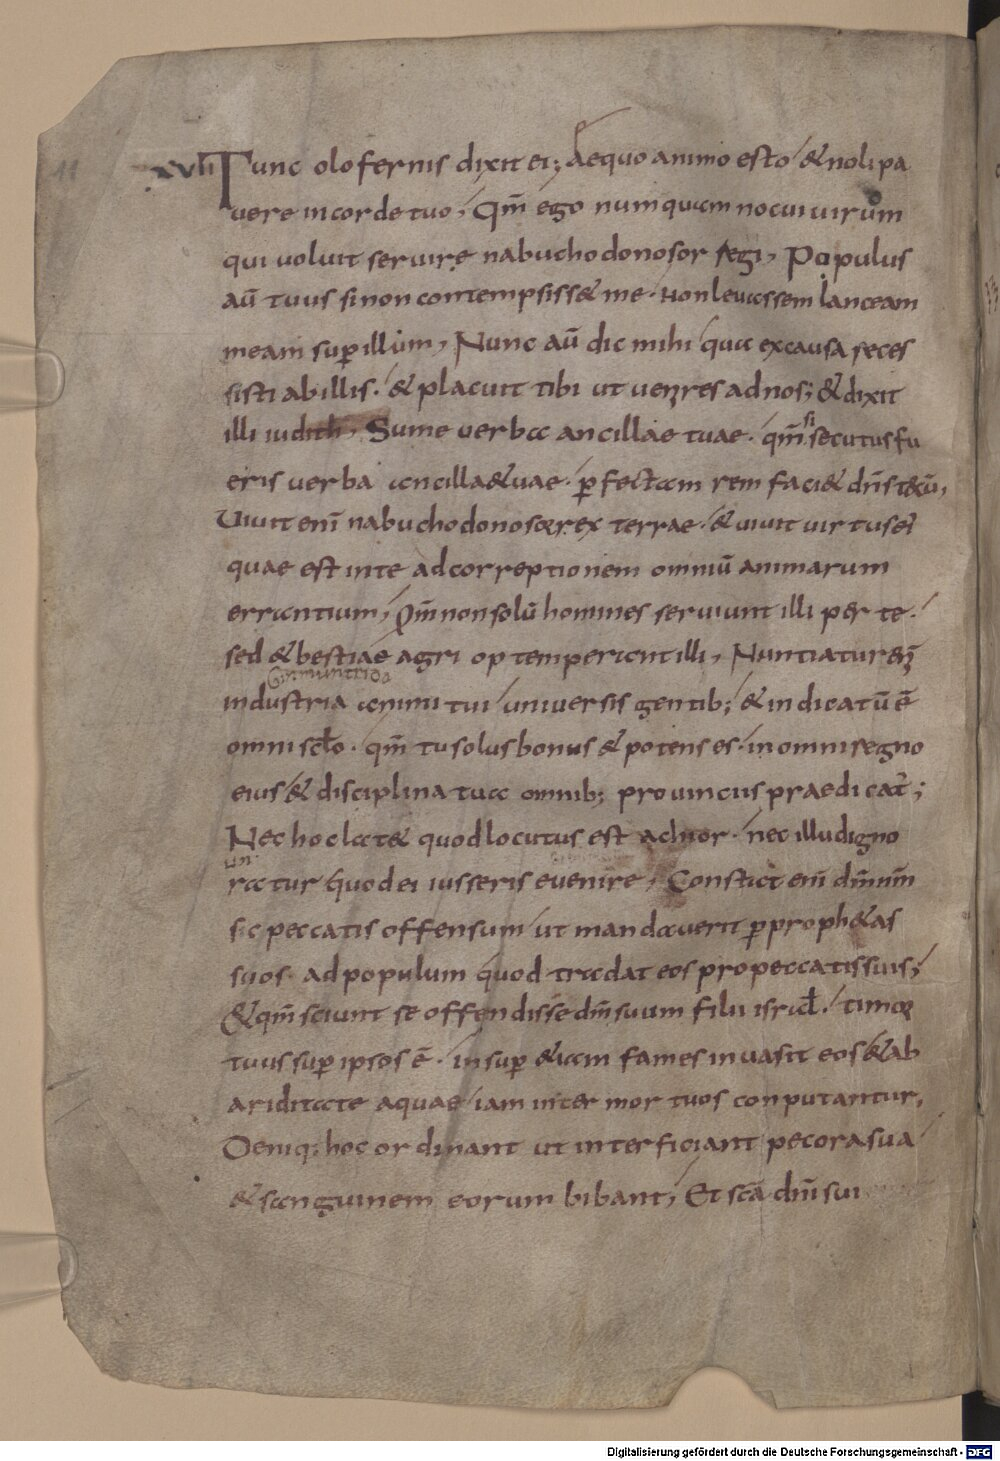 11
xvii Tunc olofernis dixit ei; Aequo animo esto & noli pa
uere in corde tuo; Qm̄ ego numquam nocui uirum
qui uoluit seruire nabuchodonosor regi, Populus
aū tuus si non contempsiss& me · Non leuassem lanceam
meam sup̱ illum, Nunc aū dic mihi qua ex causa reces
sisti ab illis · & placuit tibi ut uenires ad nos; & dixit
illi iudith, Sume uerba ancillae tuae · qm̄ si secutus fu
eris uerba ancilla&uae · p̱fectam rem faci& dn̄s tecū,
Uiuit enī nabuchodonosor rex terrae · & uiuit uirtus ei
quae est in te ad correptionem omniū animarum
errantium, Qm̄ non solū homines seruiunt illi per te ·
sed & bestiae agri optemperant illi, Nuntiatur enī
industria animi tui uniuersis gentib; & indicatū ē
omni scło · qm̄ tu solus bonus & potens es · in omni regno
eius & disciplina tua omnib; prouinciis praedicat̄;
Nec hoc lat& quod locutus est achior · nec illud igno
un
ratur quod ei iusseris euenire, Constat enī dm̄ nm̄
sic peccatis offensum ut mandauerit p̱ proph&as
suos · ad populum quod tradat eos pro peccatis suis;
& qm̄ sciunt se offendisse dm̄ suum filii israł · timor
tuus sup̱ ipsos ē · insup̱ &iam fames inuasit eos & ab
ariditate aquae iam inter mortuos conputantur,
Deniq; hoc ordinant ut interficiant pecora sua
& sanguinem eorum bibant, Et scā dnī sui
Digitalisierung gefördert durch die Deutsche Forschungsgemeinschaft - DFG